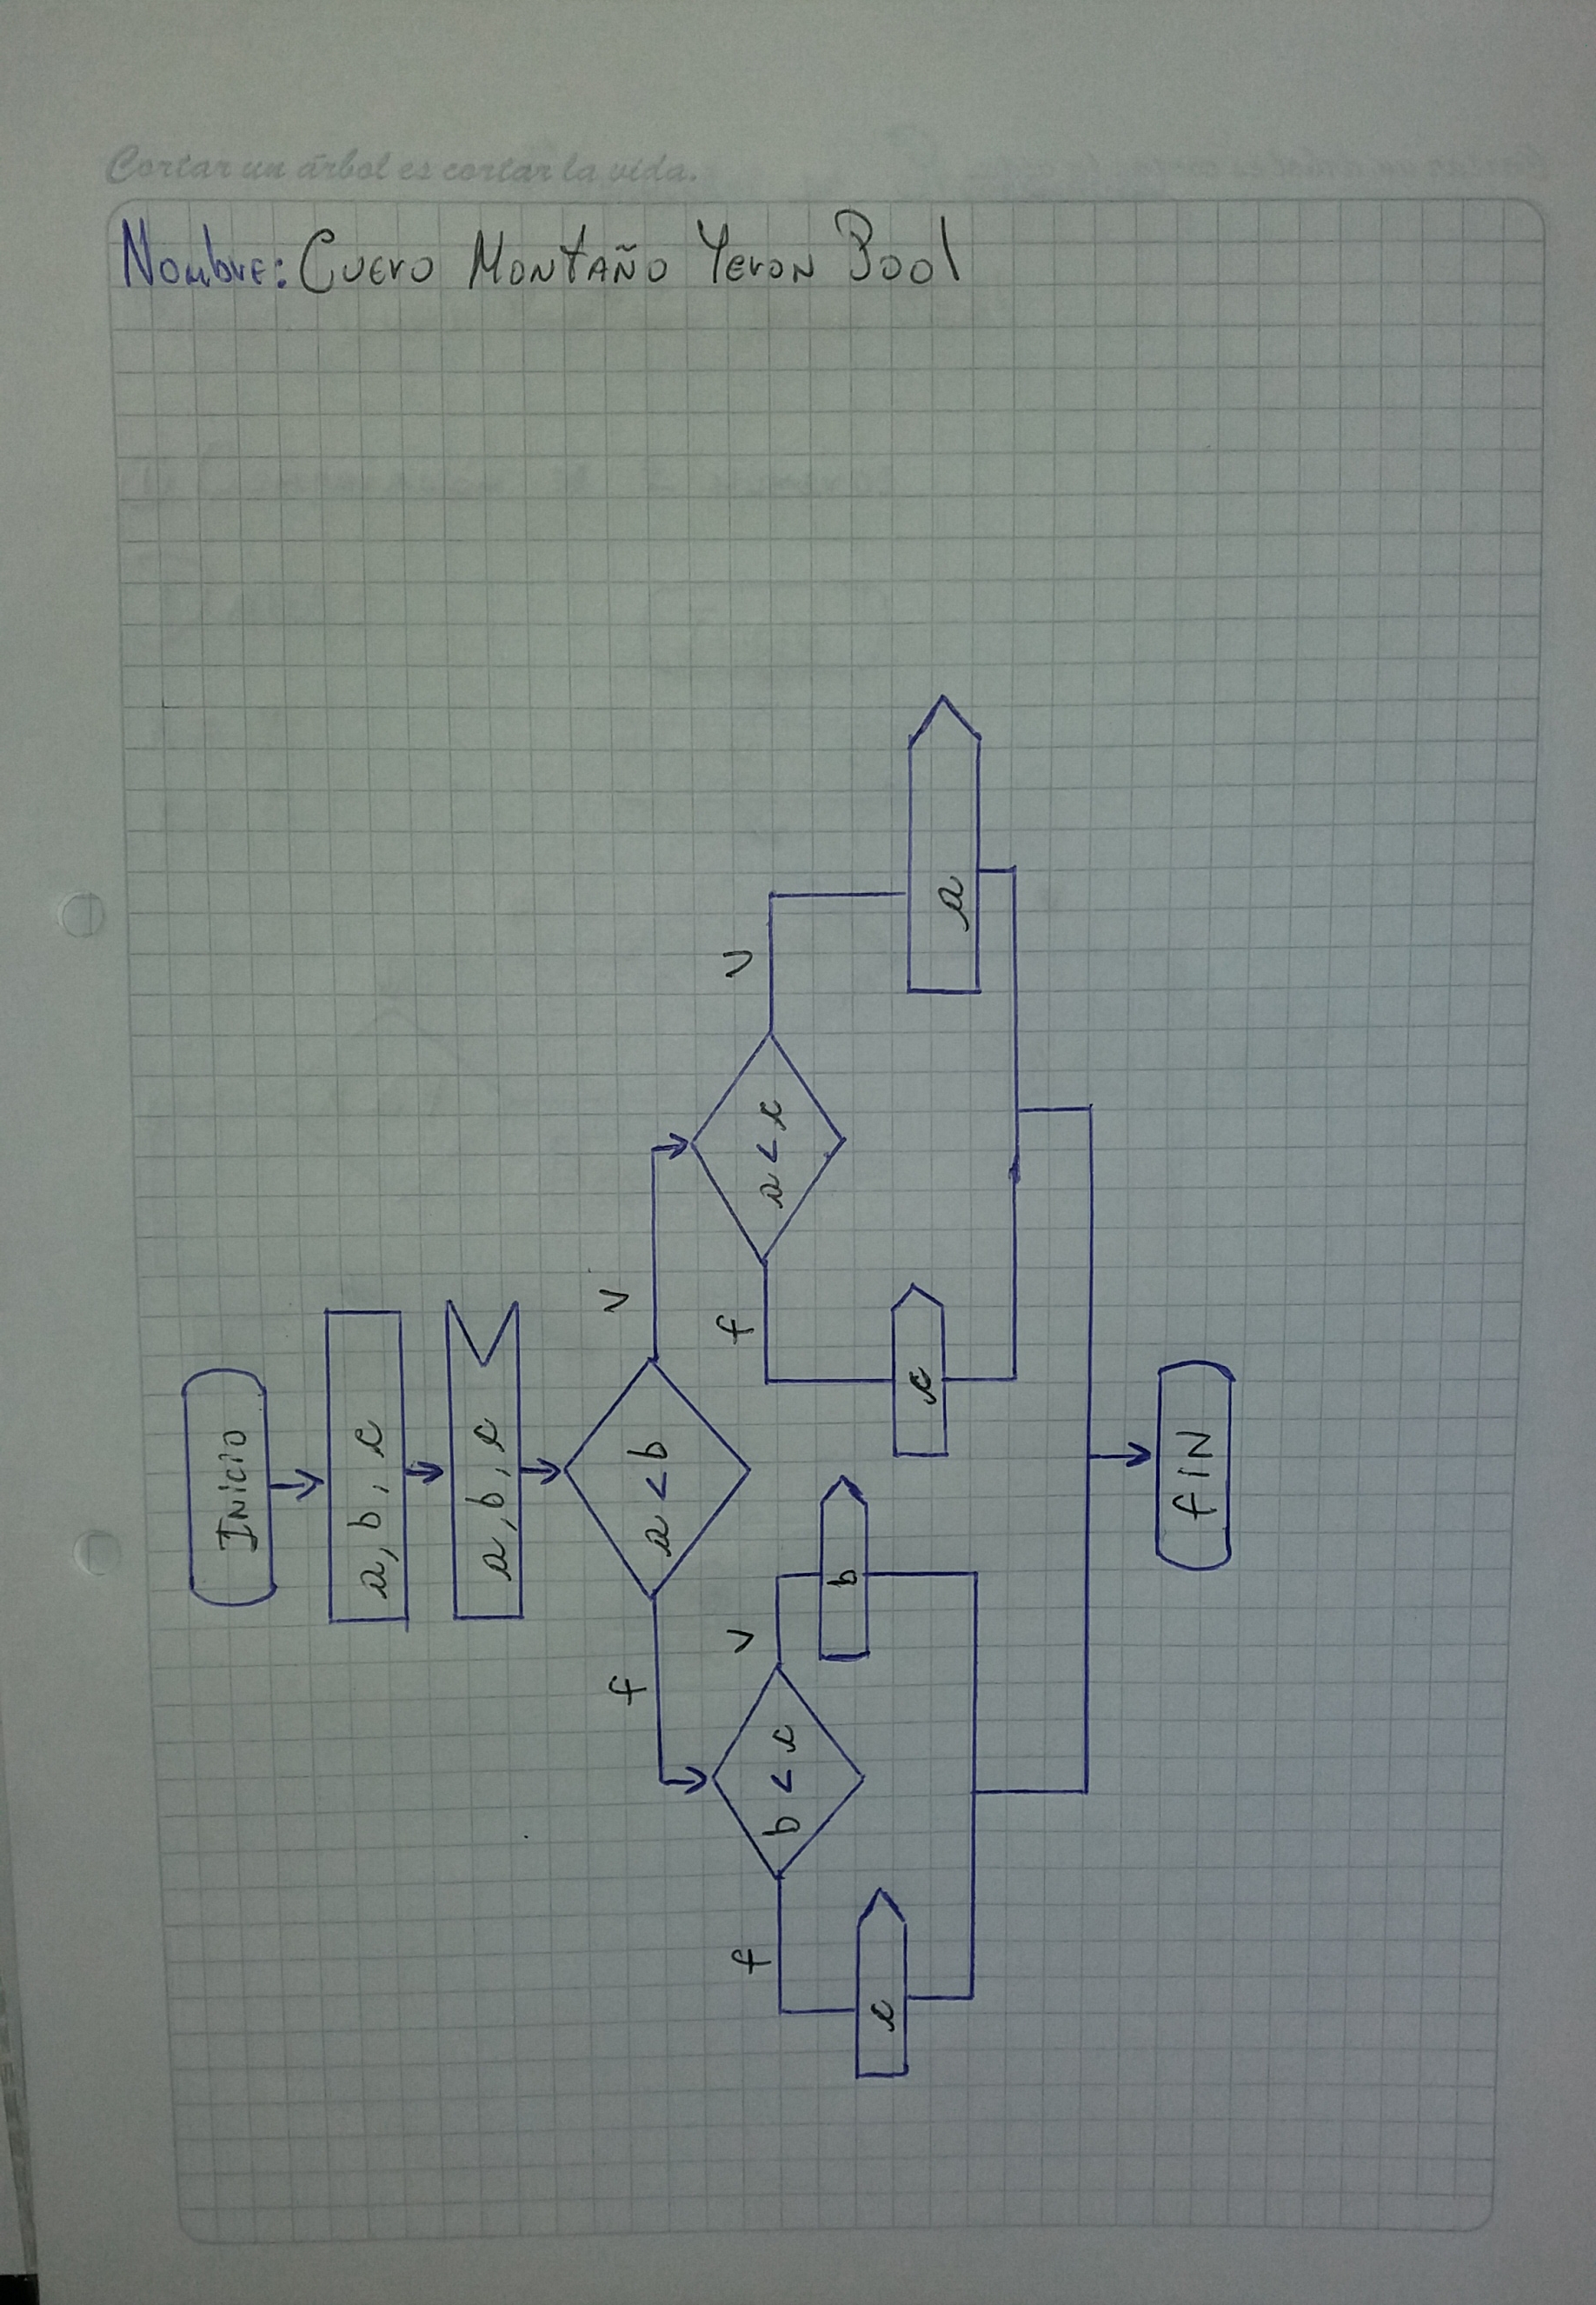 Cortar un árbol es cortar la vida.
Nombre: Cuero Montaño Yeron Bool
Inicio
a, b, c
a, b, c
a < b
f
V
b < c
a < c
f
V
f
V
c
b
c
a
fIN